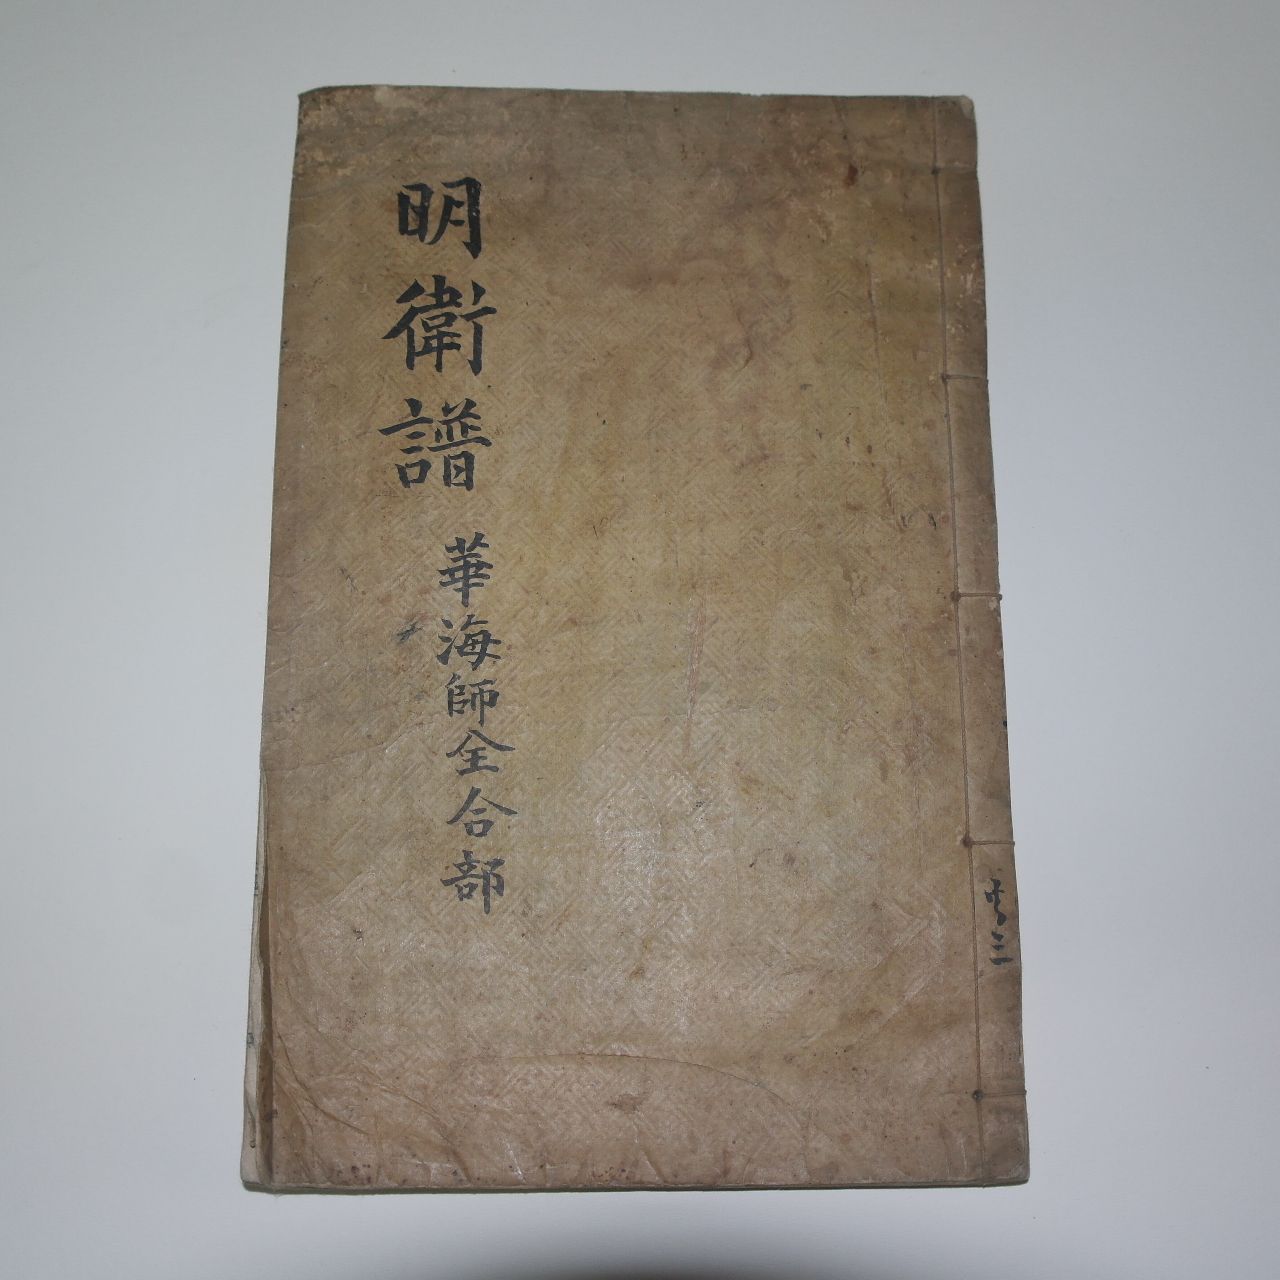 明衛譜
華海師全合部
共三